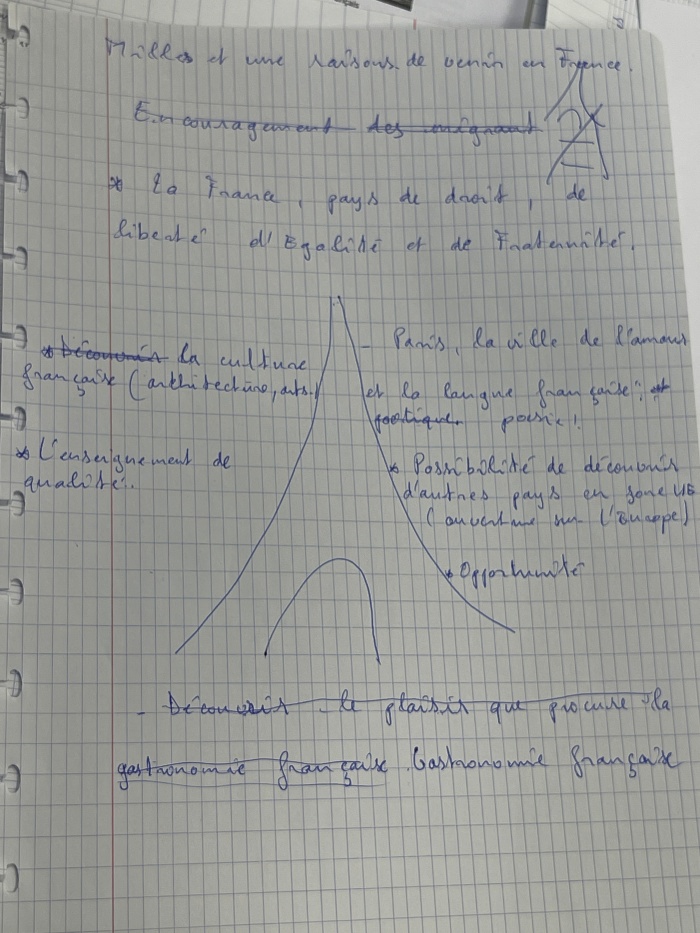 Milles et une raisons de venir en France.
Encouragement des migrant
* La France, pays de droit, de
liberté d'Egalité et de Fraternité.
* Découvrir la culture
française (architecture, arts.)
* L'enseignement de
qualité.
- Paris, la ville de l'amour
et la langue française; et
poétique. poésie!
* Possibilité de découvrir
d'autres pays en zone UE
(ouverture sur l'Europe)
* Opportunité
- Découvrir le plaisir que procure la
gastronomie française. Gastronomie française